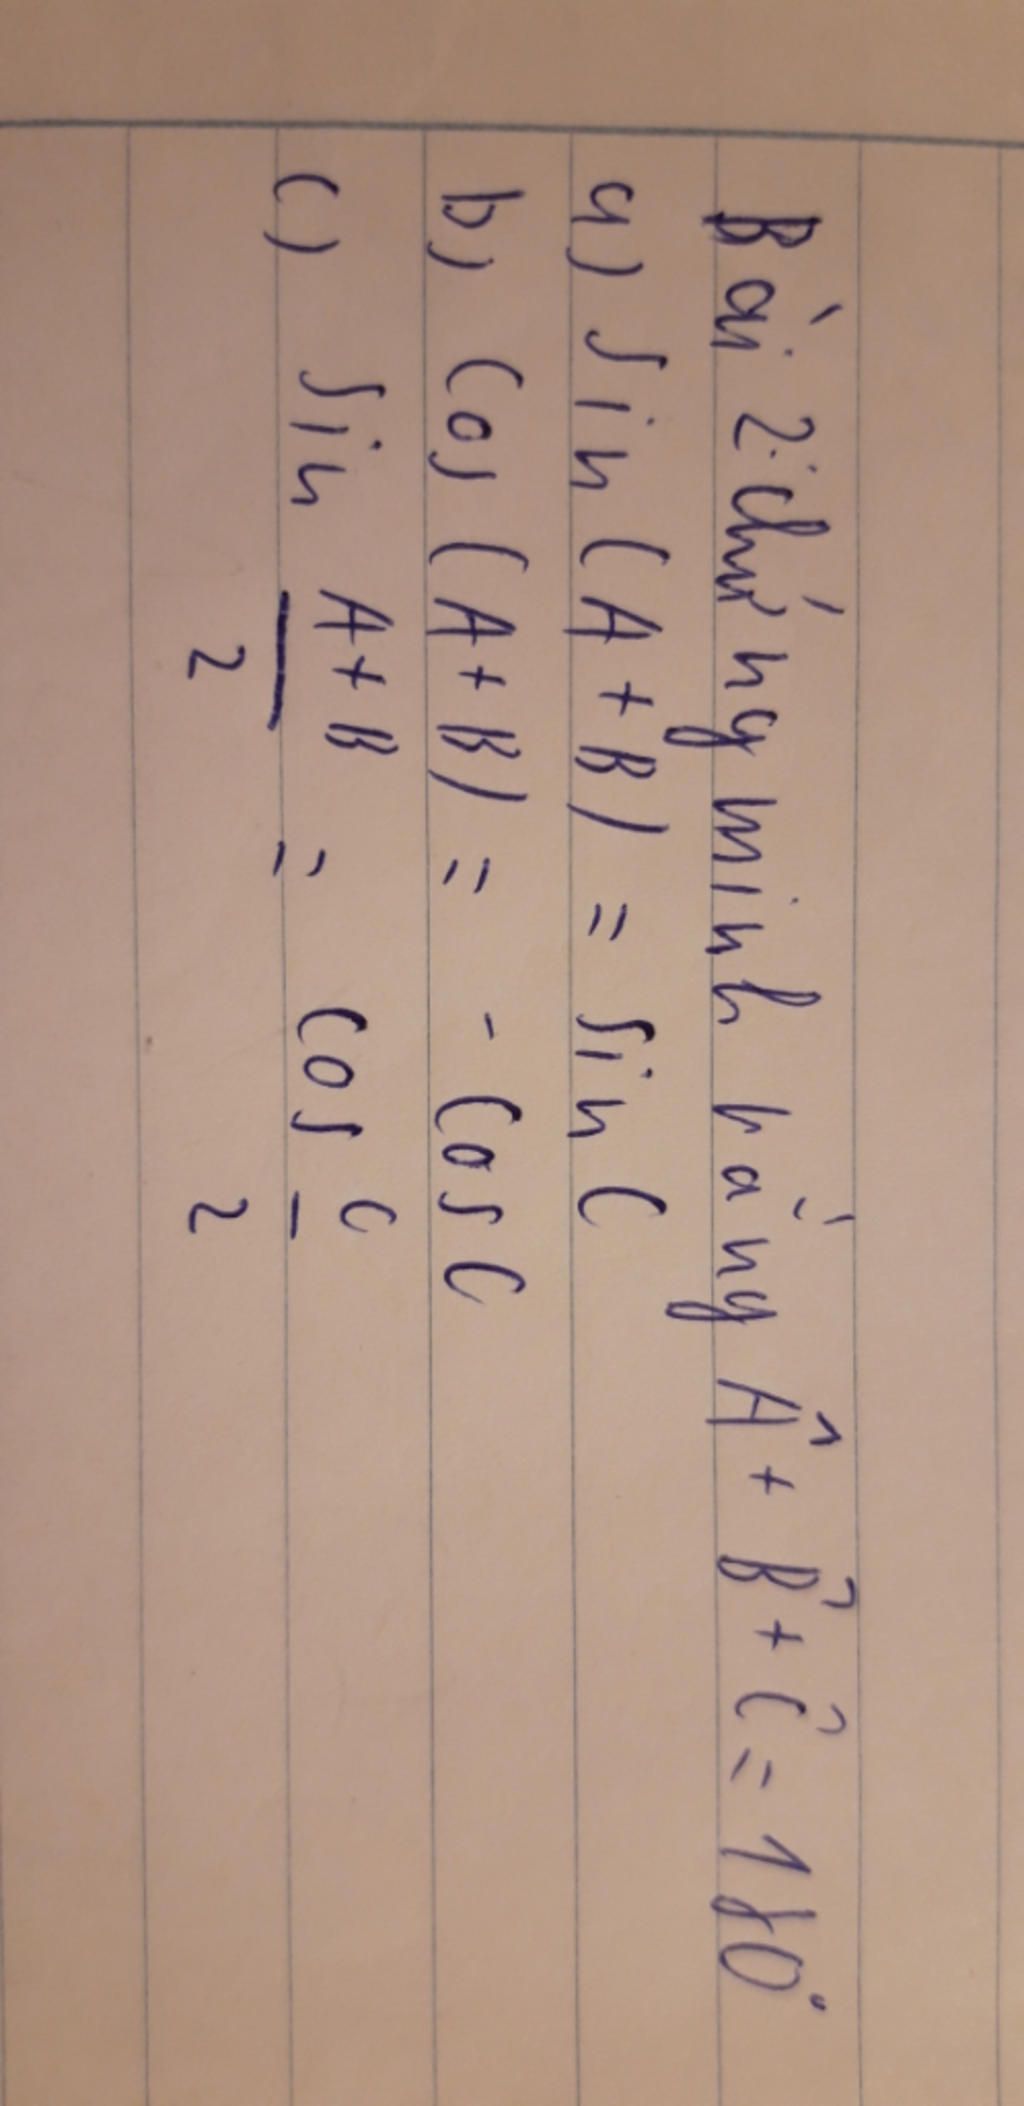 Bài 2: chứng minh rằng Â + B̂ + Ĉ = 180°
a) Sin (A + B) = Sin C
b) Cos (A + B) = - Cos C
c) Sin \frac{A+B}{2} = Cos \frac{C}{2}